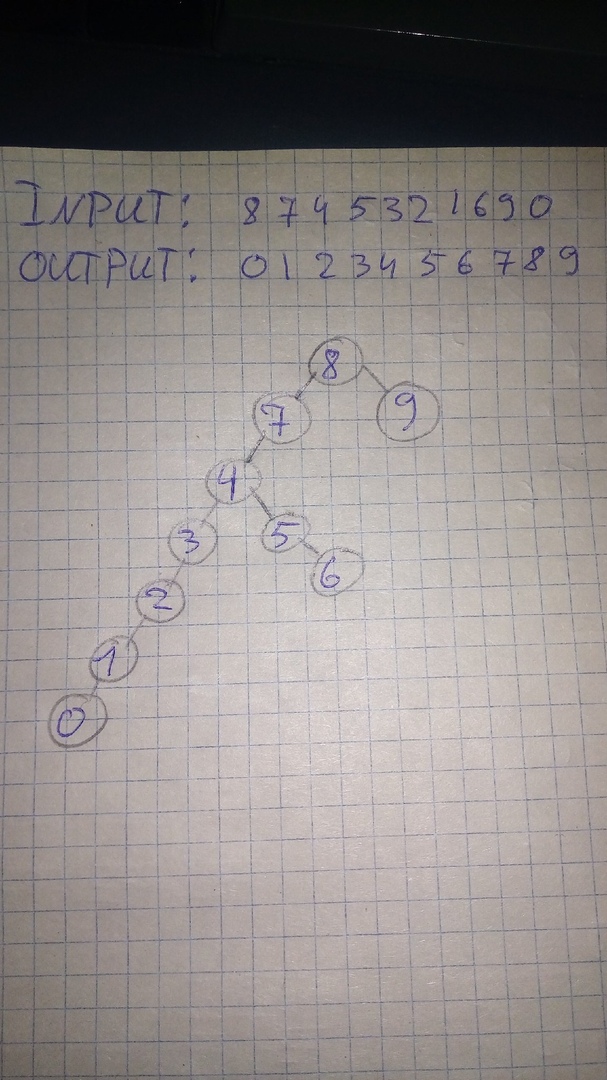 INPUT: 8 7 4 5 3 2 1 6 9 0
OUTPUT: 0 1 2 3 4 5 6 7 8 9
8
7 9
4
3 5
6
2
1
0